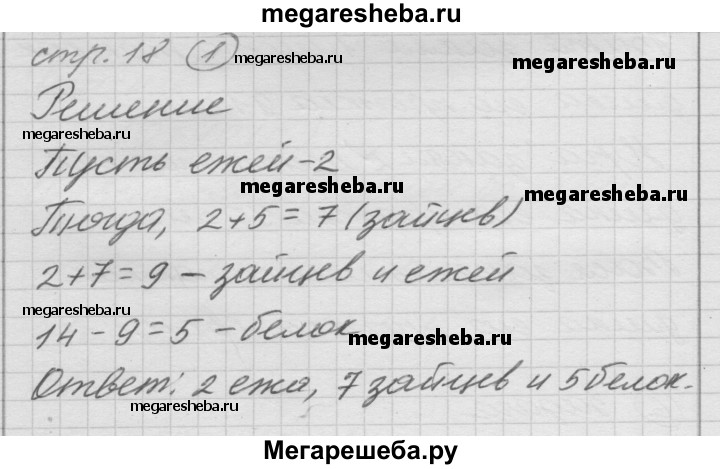 megaresheba.ru
стр. 18 1 megaresheba.ru
megaresheba.ru
Решение
megaresheba.ru
Пусть ежей-2
megaresheba.ru
megaresheba.ru
Тогда, 2+5=7 (зайцев)
2+7=9 – зайцев и ежей
megaresheba.ru
14-9=5 – белок
megaresheba.ru
Ответ: 2 ежа, 7 зайцев и 5 белок.
megaresheba.ru
megaresheba.ru
Мегарешеба.ру